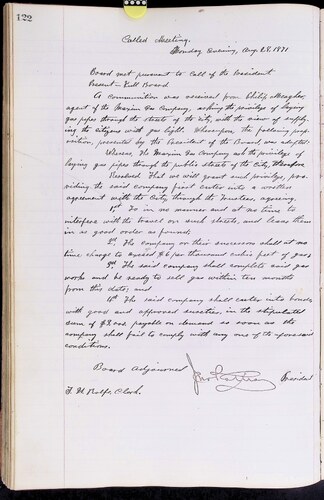 122
Called Meeting.
Monday Evening, Aug. 28, 1871
Board met pursuant to Call of the President
Present - Full Board
A communication was received from
agent of the Maxim Gas Company, asking the privilege of laying
gas pipes through the streets of the city, with the view of supply-
ing the citizens with gas light. Whereupon, the following prop-
osition, presented by the President of the Board was adopted:
Whereas, The Maxim Gas Company ask the privilege of
laying gas pipes through the public streets of the City, therefore
Resolved. That we will grant such privilege, pro-
viding the said company first enter into a written
agreement with the City through its Trustees, agreeing,
1st To in no manner and at no time to
interfere with the travel on such streets, and leave them
in as good order as found;
2d The company or their successors shall at no
time charge to exceed $6 per thousand cubic feet of gas;
3d The said company shall complete said gas
works and be ready to sell gas within ten months
from this date; and
4th The said company shall enter into bonds,
with good and approved sureties, in the stipulated
sum of payable on demand as soon as the
company shall fail to comply with any one of the aforesaid
conditions.
Board Adjourned
President
Rolfe, Clerk.